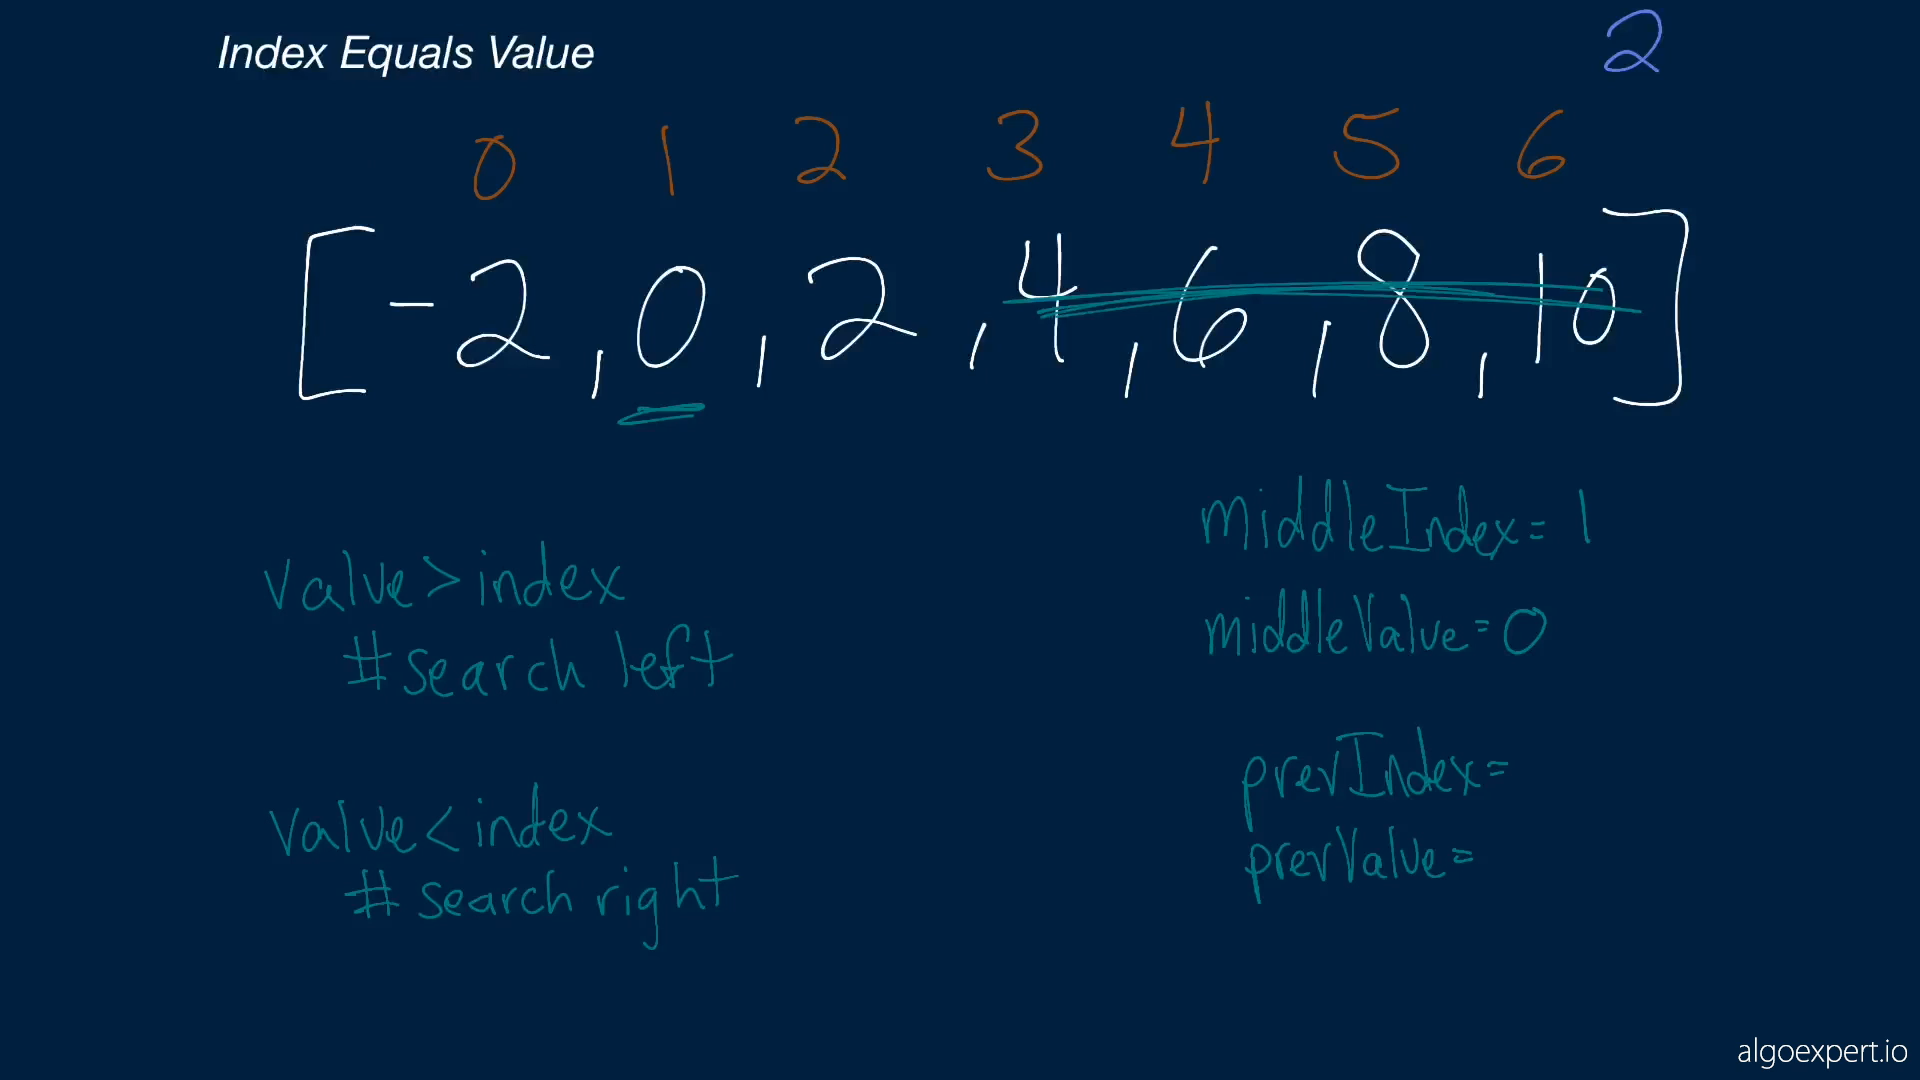 Index Equals Value
2
0 1 2 3 4 5 6
[-2, 0, 2, 4, 6, 8, 10]
value > index
# search left
value < index
# search right
middleIndex = 1
middleValue = 0
prevIndex =
prevValue =
algoexpert.io